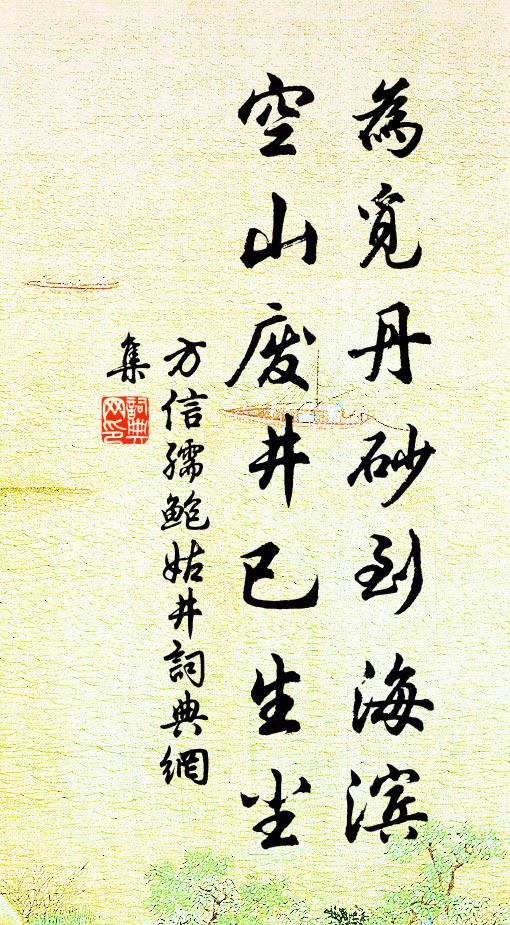 為覓丹砂到海滨
空山废井已生尘
方信孺鲍姑井詞典網
集
詞典网印